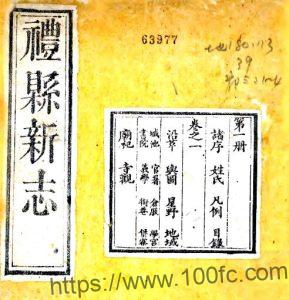 禮縣新志
63977
第一册
諸序 姓氏 凡例 目録
卷之一
沿革 輿圖 星野 地域
城池 官署 倉廒 學宮
書院 義學 街巷
廟祀 寺觀
https://www.100fc.com